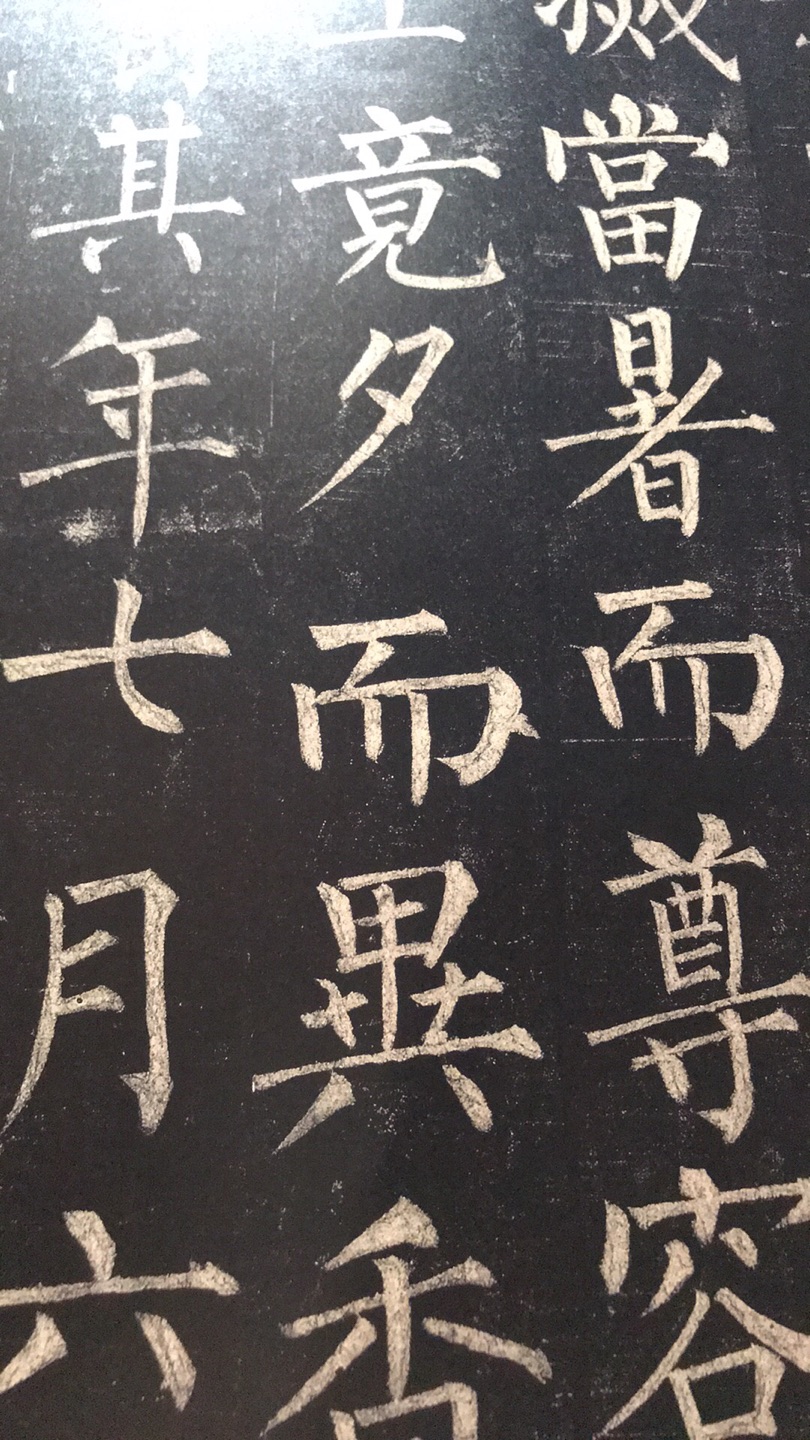 當暑而尊容
竟夕而異香
其年七月六